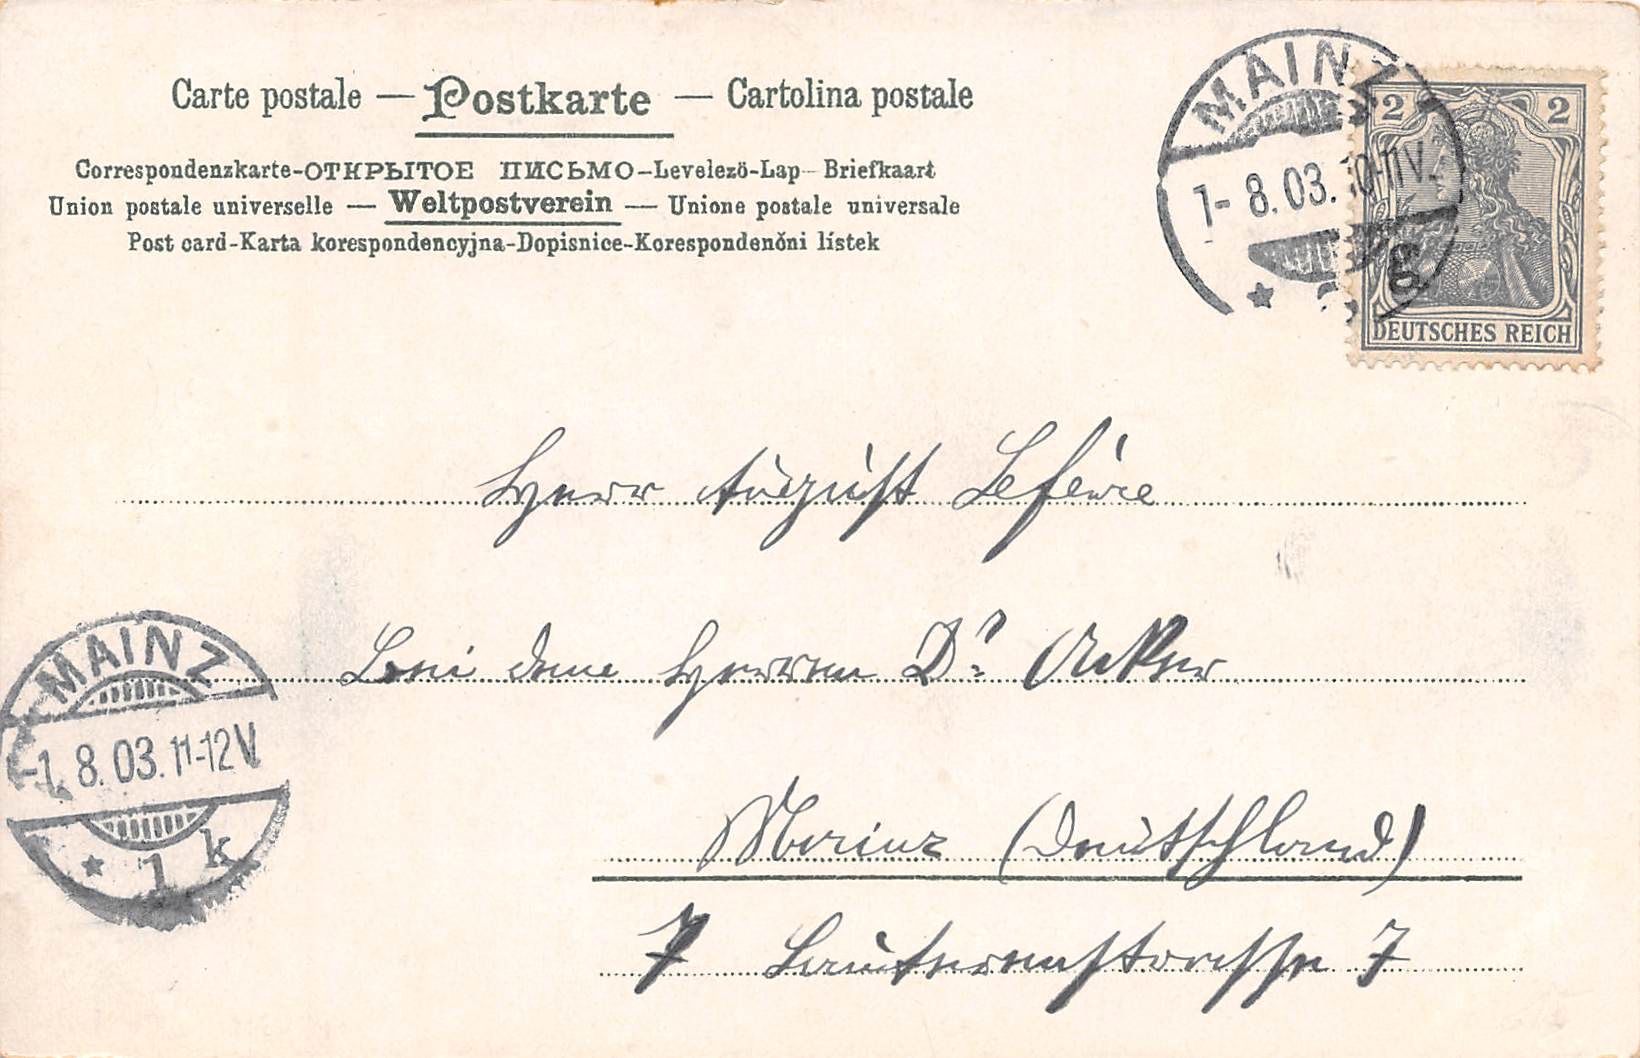 Carte postale — Postkarte — Cartolina postale
Correspondenzkarte-ОТКРЫТОЕ ПИСЬМО-Levelezö-Lap-Briefkaart
Union postale universelle — Weltpostverein — Unione postale universale
Post card-Karta korespondencyjna-Dopisnice-Korespondenčni lístek
MAINZ
1-8.03.10-11V.
g
2 2
DEUTSCHES REICH
Herr August Lefèvre
bei dem Herren Dr. Acker
MAINZ
-1.8.03.11-12V.
* 1 k
Mainz (Deutschland)
7 Lauterenstrasse 7